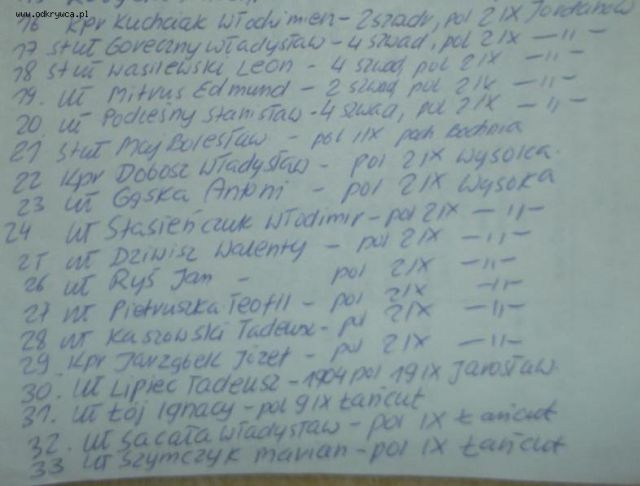 www.odkrywca.pl
16 Kpr Kuchciak Włodzimierz - 2 szadr, pol 2 IX Jordanów
17 st uł Goreczny Władysław - 4 szwad, pol 2 IX — 11 —
18 st uł Wasilewski Leon - 4 szwad pol 2 IX — 11 —
19. uł Mitrus Edmund - 2 szwad pol 2 IX — 11 —
20. uł Podleśny Stanisław - 4 szwad, pol 2 IX — 11 —
21 st uł Maj Bolesław - pol 1 IX pod Bochnia
22 Kpr Dobosz Władysław - pol 2 IX Wysoka.
23 uł Gąska Antoni - pol 2 IX Wysoka
24 uł Stasieńczuk Włodimir - pol 2 IX — 11 —
25 uł Dziwisz Walenty - pol 2 IX — 11 —
26 uł Ryś Jan - pol 2 IX — 11 —
27 uł Pietruszka Teofil - pol 2 IX — 11 —
28 uł Kaszowski Tadeusz - pol 2 IX — 11 —
29. Kpr Jarząbek Józef - pol 2 IX — 11 —
30. uł Lipiec Tadeusz - 1904 pol 19 IX Jarosław.
31. uł Łój Ignacy - pol 9 IX Łańcut
32. uł Sacała Władysław - pol IX Łańcut
33 uł Szymczyk Marian - pol IX Łańcut